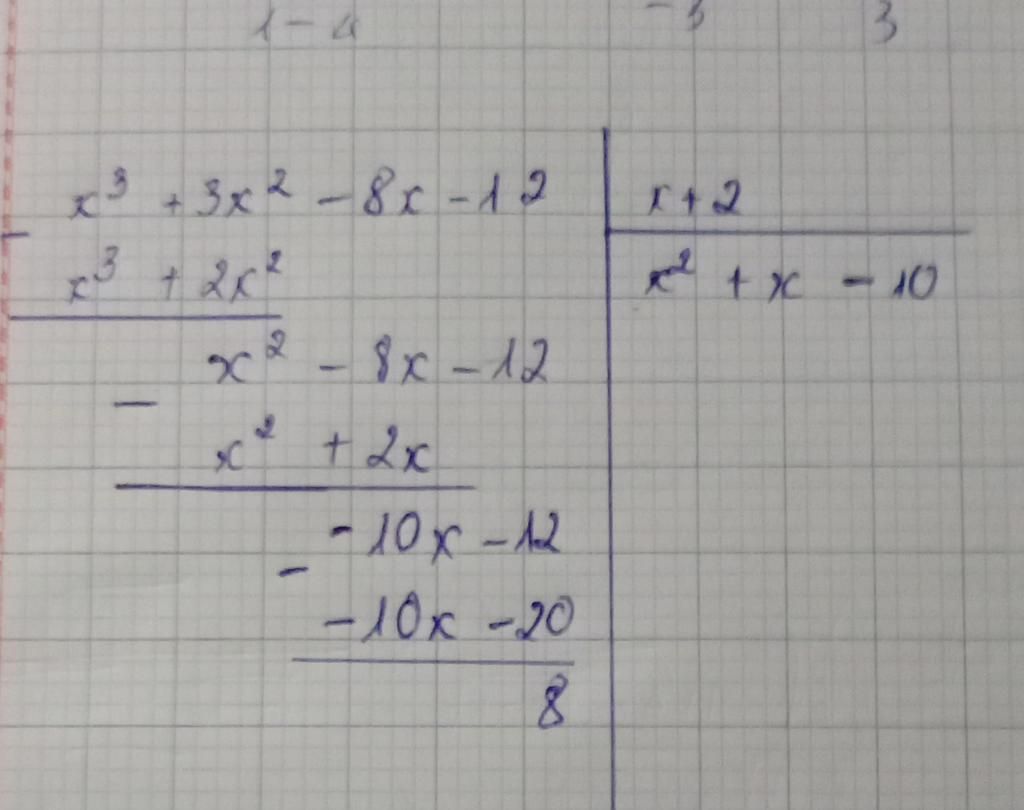 1 - 4 -3 3
x³ + 3x² - 8x - 12 | x + 2
-
x³ + 2x² x² + x - 10
x² - 8x - 12
-
x² + 2x
- 10x - 12
-
- 10x - 20
8